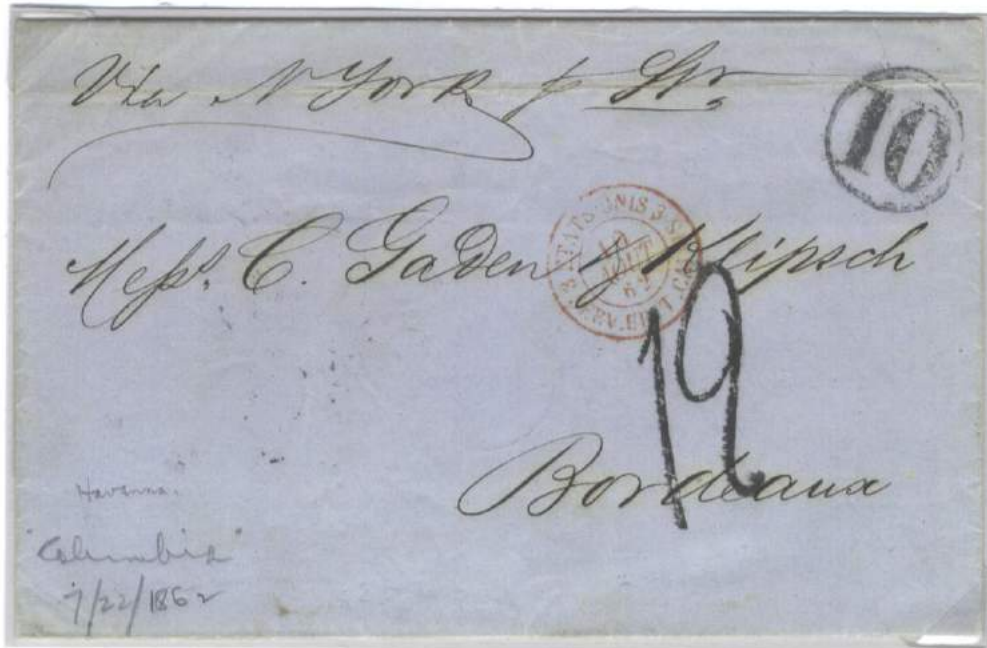 Via N York p Str
10
Messrs. C. Gaden & Klipsch
ETATS-UNIS 3 SERV. BRIT. CAL. 3
10 AOUT 62
12
Bordeaux
Havanna.
"Columbia"
7/22/1862